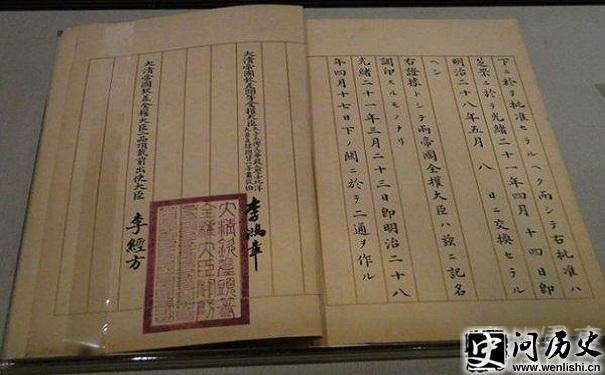 下ニ於テ批准セラルヘク而シテ右批准ハ
芝罘ニ於テ光緒二十一年四月十四日即
明治二十八年五月 八 日ニ交換セラル
ヘシ
右證據トシテ兩帝國全權大臣ハ茲ニ記名
調印スルモノナリ
光緒二十一年三月二十三日即明治二十八
年四月十七日下ノ關ニ於テ二通ヲ作ル
大清帝國欽差頭等全權大臣
太子太傅文華殿大學士北洋
大臣直隸總督一等肅毅伯
李鴻章
大清帝國欽差全權大臣二品頂戴前出使大臣 李經方
大清欽差頭等
全權大臣關防
史问历史
www.wenlishi.cn